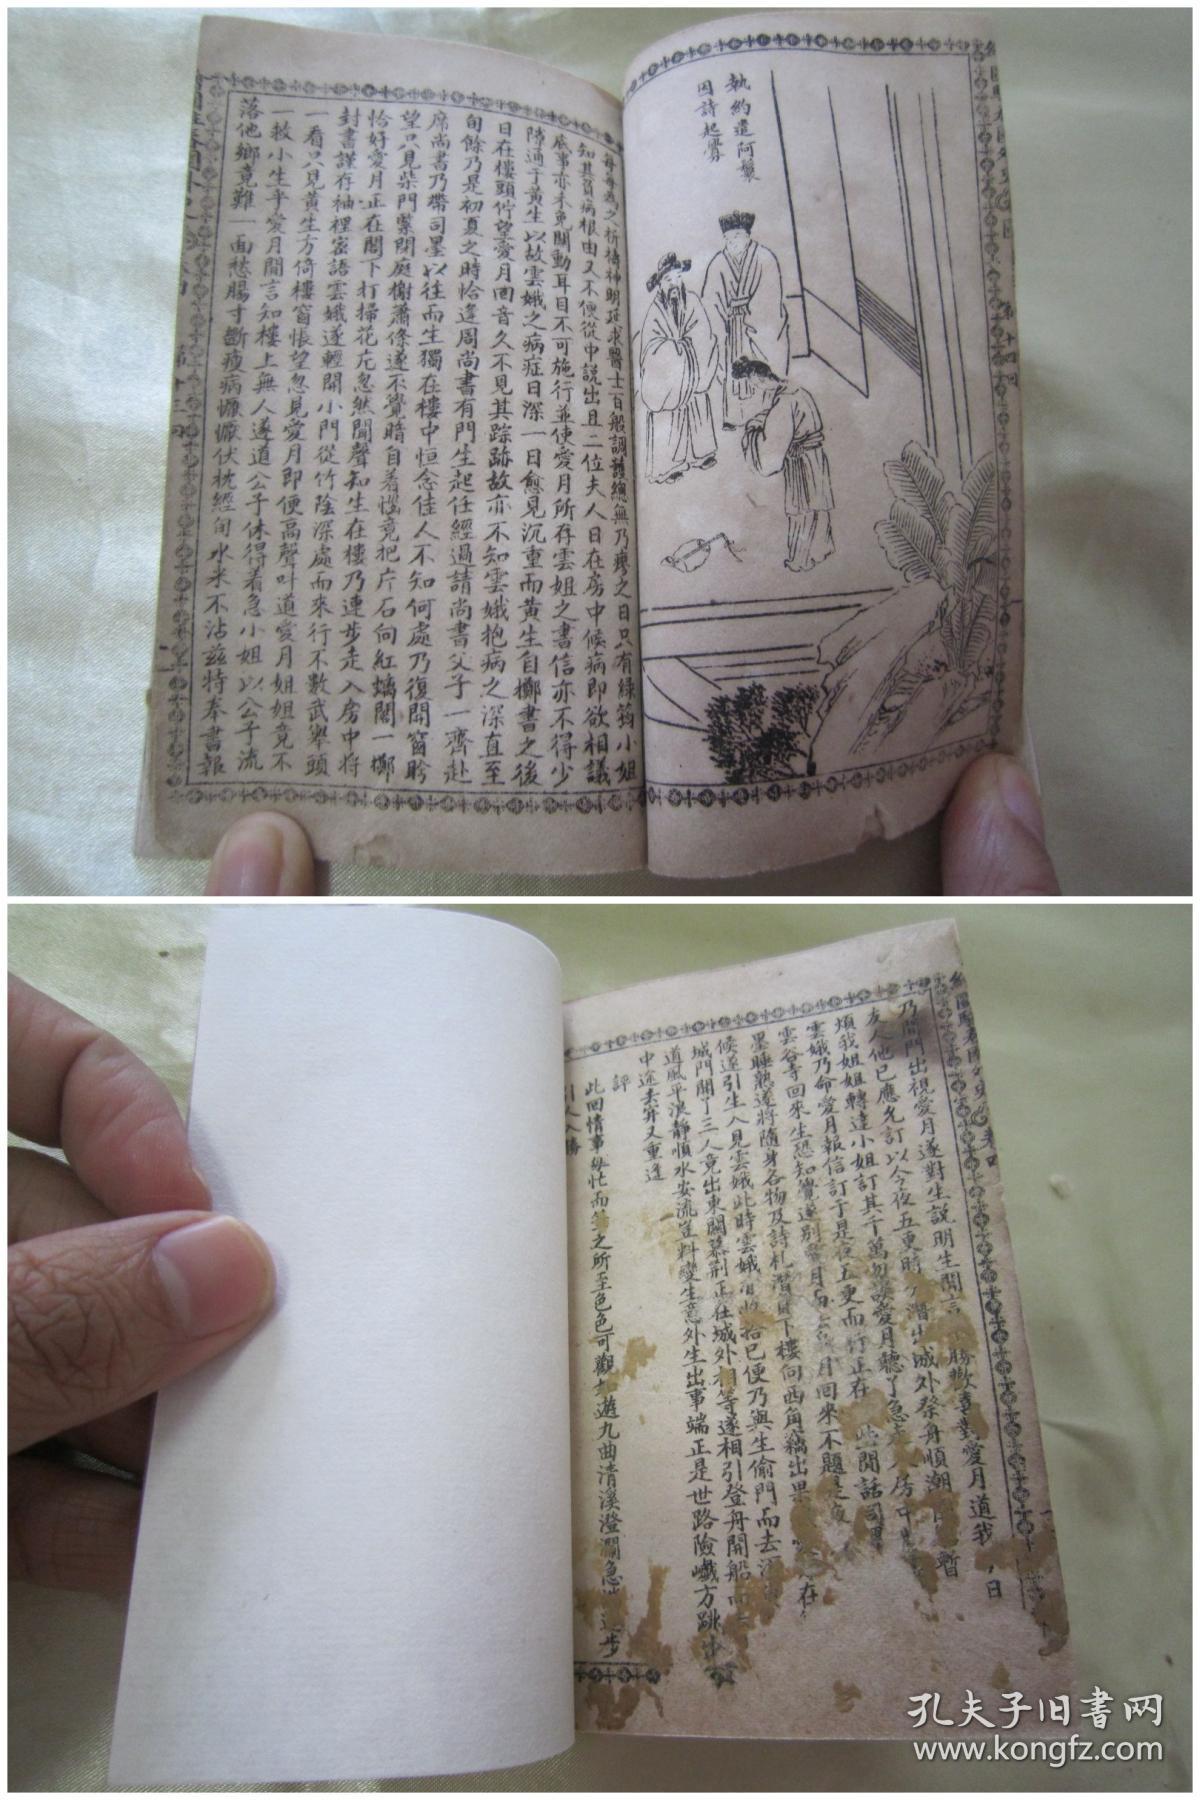 執約遣阿鬟
因詩起釁
每每為之祈禱神明延求醫士百般調護總無乃瘳之日只有綠筠小姐
知其負病根由又不便從中說出且二位夫人日在房中候病即欲相議
底事亦未免關動耳目不可施行並使愛月所存雲姐之書信亦不得少
隙通于黃生以故雲娥之病症日深一日愈見沉重而黃生自擲書之後
日在樓頭佇望愛月回音久不見其踪跡故亦不知雲娥抱病之深直至
旬餘乃是初夏之時恰逢周尚書有門生起任經過請尚書父子一齊赴
席尚書乃帶司墨以往而生獨在樓中恒念佳人不知何處乃復開窗盼
望只見柴門緊閉庭榭蕭條遂不覺暗自着惱竟把片石向紅螭閣一擲
恰好愛月正在閣下打掃花片忽然聞聲知生在樓乃連步走入房中將
封書謹存袖裡密語雲娥遂輕開小門從竹陰深處而來行不數武舉頭
一看只見黃生方倚樓窗悵望忽見愛月即便高聲叫道愛月姐姐竟不
一救小生乎愛月聞言知樓上無人遂道公子休得着急小姐以公子流
落他鄉竟難一面愁腸寸斷瘦病懨懨伏枕經旬水米不沾茲特奉書報
第十三回
第十四回
繪圖駐春園外史 卷四
乃開門出視愛月遂對生說明生聞言 勝歡喜對愛月道我 日
友人他已應允訂以今夜五更時 潛出城外發舟順潮 暫
煩我姐姐轉達小姐訂其千萬勿悮愛月聽了急走 房中
雲娥乃命愛月報信訂于是夜五更而行正在 些閒話司墨
雲谷寺回來生恐知覺遂別愛月而 月回來不題是夜
墨睡熟遂將隨身各物及詩札潛 下樓向西角竊出果 在
候遂引生入見雲娥此時雲娥 拾已便乃與生偷門而去
城門開了三人竟出東關慕荊正在城外相等遂相引登舟開船而
道風平浪靜順水安流豈料變生意外生出事端正是世路險巇方跳出
中途去穽又重逢
評
此回情事匆忙而筆之所至色色可觀如遊九曲清溪澄瀾急 步
引人入勝
孔夫子旧书网
www.kongfz.com